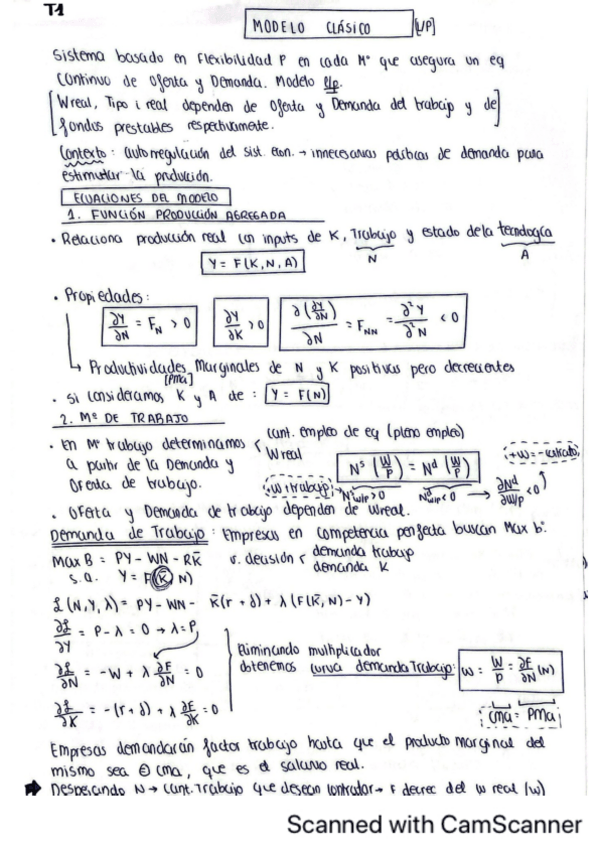 T1
MODELO CLÁSICO [L/P]
Sistema basado en Flexibilidad P en cada Mº que asegura un eq
continuo de Oferta y Demanda. Modelo l/p.
[W real, Tipo i real dependen de Oferta y Demanda del trabajo y de
fondos prestables respectivamente.]
Contexto: autorregulación del sist. econ. → innecesarias políticas de demanda para
estimular la producción.
ECUACIONES DEL MODELO
1. FUNCIÓN PRODUCCIÓN AGREGADA
• Relaciona producción real con inputs de K, Trabajo y estado de la tecnología
N A
Y = F(K, N, A)
• Propiedades:
∂Y/∂N = F_N > 0 ∂Y/∂K > 0 ∂(∂Y/∂N)/∂N = F_NN = ∂²Y/∂²N < 0
↳ Productividades Marginales de N y K positivas pero decrecientes
[PMa]
• Si consideramos K y A de: Y = F(N)
2. Mº DE TRABAJO
• En Mº trabajo determinamos < cant. empleo de eq (pleno empleo)
W real
a partir de la Demanda y
Oferta de trabajo.
N^s (W/P) = N^d (W/P)
+W = -
+W+trabajo N^s_W/P > 0 N^d_W/P < 0 → ∂N^d/∂W/P < 0
• Oferta y Demanda de trabajo dependen de W real.
Demanda de Trabajo: Empresas en competencia perfecta buscan Max bº
Max B = PY - WN - RK̄ v. decisión < demanda trabajo
demanda K
s.a. Y = F(K̄, N)
ℒ(N, Y, λ) = PY - WN - K̄(r + δ) + λ(F(K̄, N) - Y)
∂ℒ/∂Y = P - λ = 0 → λ = P
∂ℒ/∂N = -W + λ ∂F/∂N = 0
∂ℒ/∂K = -(r + δ) + λ ∂F/∂K = 0
Eliminando multiplicador
obtenemos curva demanda Trabajo: w = W/P = ∂F/∂N (N)
Cma = PMa
Empresas demandarán factor trabajo hasta que el producto marginal del
mismo sea = cma, que es el salario real.
➡ Despejando N → cant. Trabajo que desean contratar → F decrec del w real (w)
Scanned with CamScanner